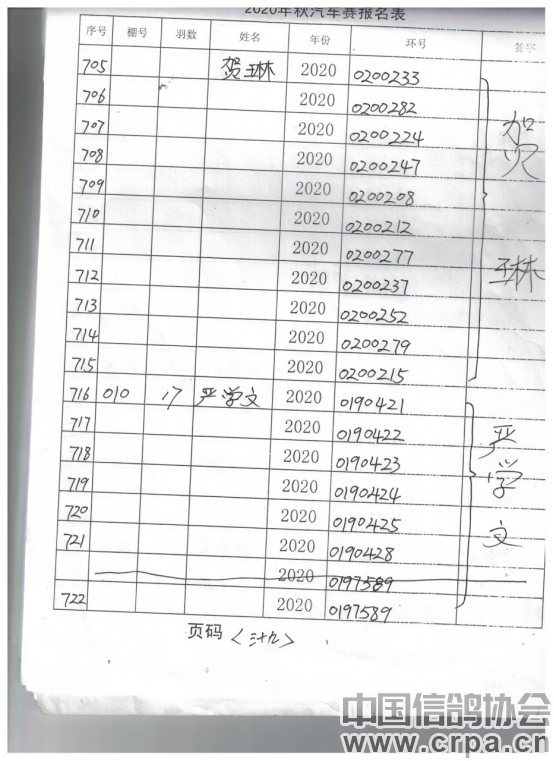 2020年秋汽车赛报名表
序号 棚号 羽数 姓名 年份 环号 签字
705 贺琳 2020 0200233
706 2020 0200282
707 2020 0200224
708 2020 0200247
709 2020 0200208
710 2020 0200212
711 2020 0200277
712 2020 0200237
713 2020 0200252
714 2020 0200279
715 2020 0200215
贺琳
716 010 17 严学文 2020 0190421
717 2020 0190422
718 2020 0190423
719 2020 0190424
720 2020 0190425
721 2020 0190428
2020 0197589
722 2020 0197589
严学文
页码
中国信鸽协会
www.crpa.cn